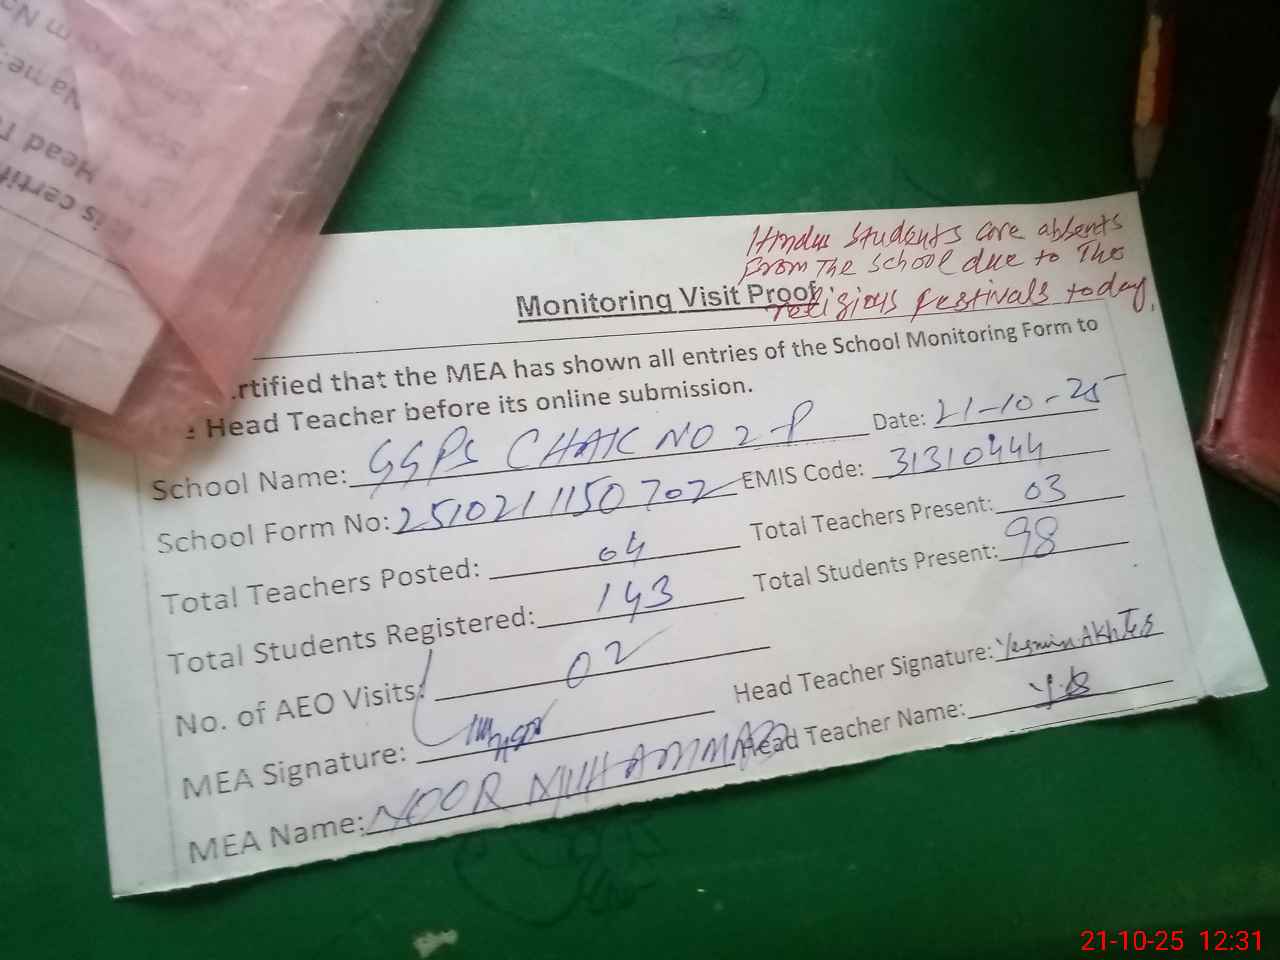 Hindus Students are absents
From The School due to The
religious festivals today.
Monitoring Visit Proof
rtified that the MEA has shown all entries of the School Monitoring Form to
e Head Teacher before its online submission.
School Name: GGPS CHAK NO 2-P Date: 21-10-25
School Form No: 251021150702 EMIS Code: 31310444
Total Teachers Posted: 04 Total Teachers Present: 03
Total Students Registered: 143 Total Students Present: 98
No. of AEO Visits: 02
MEA Signature: Head Teacher Signature: Yasmin Akhter
MEA Name: NOOR MUHAMMAD Head Teacher Name:
is certifi
Head T
Name:
21-10-25 12:31